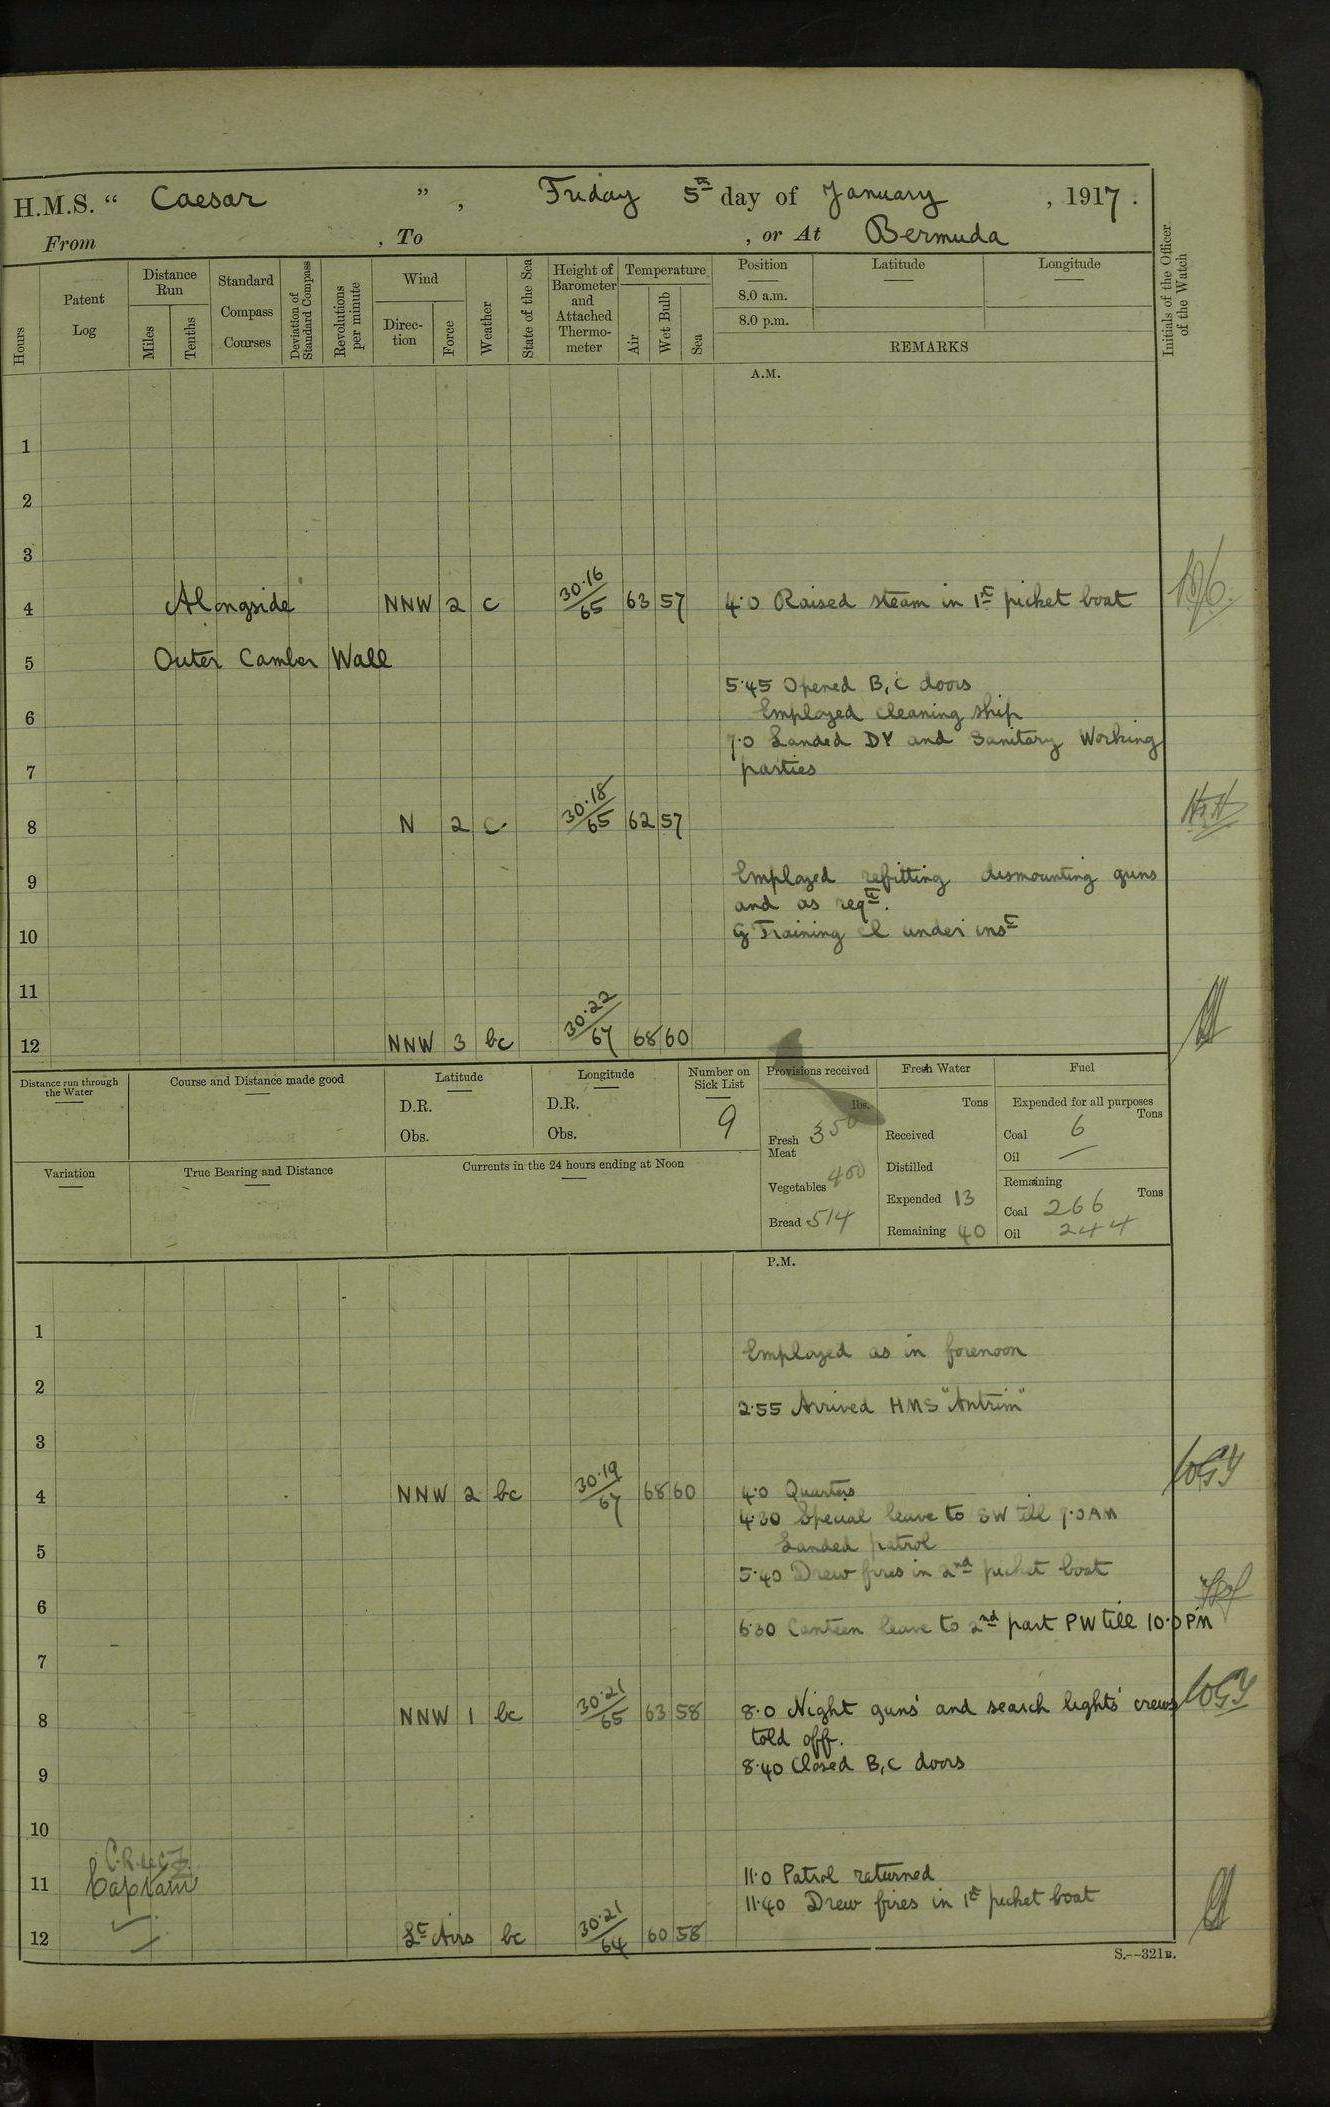 H.M.S. “ Caesar ” , Friday 5th day of January , 1917 .
From , To , or At Bermuda
Hours
Patent Log
Distance Run
Miles
Tenths
Standard Compass Courses
Deviation of Standard Compass
Revolutions per minute
Wind
Direc-tion
Force
Weather
State of the Sea
Height of Barometer and Attached Thermo-meter
Temperature
Air
Wet Bulb
Sea
Position
Latitude
Longitude
8.0 a.m.
8.0 p.m.
REMARKS
Initials of the Officer of the Watch
A.M.
1
2
3
4 Alongside NNW 2 c 30.16/65 63 57 4.0 Raised steam in 1st picket boat
5 Outer Camber Wall
5.45 Opened B,C doors
6 Employed cleaning ship
7.0 Landed DY and Sanitary Working
7 parties
8 N 2 c 30.18/65 62 57
9 Employed refitting dismounting guns
and as reqd.
10 G Training Cl under inst
11
12 NNW 3 bc 30.22/67 68 60
Distance run through the Water
Course and Distance made good
Latitude
D.R.
Obs.
Longitude
D.R.
Obs.
Number on Sick List
9
Provisions received
lbs.
Fresh Meat 350
Vegetables 400
Bread 514
Fresh Water
Tons
Received
Distilled
Expended 13
Remaining 40
Fuel
Expended for all purposes
Tons
Coal 6
Oil —
Remaining
Tons
Coal 266
Oil 244
Variation
True Bearing and Distance
Currents in the 24 hours ending at Noon
P.M.
1
Employed as in forenoon
2
2.55 Arrived HMS "Antrim"
3
4 NNW 2 bc 30.19/67 68 60 4.0 Quarters
4.30 Special leave to SW till 7.0 AM
5 Landed patrol
5.40 Drew fires in 2nd picket boat
6
6.30 Canteen leave to 2nd part PW till 10.0 PM
7
8 NNW 1 bc 30.21/65 63 58 8.0 Night guns' and search lights' crews
told off.
8.40 Closed B,C doors
9
10
11 Captain 11.0 Patrol returned
11.40 Drew fires in 1st picket boat
12 Lt Airs bc 30.21/64 60 58
S.—321B.